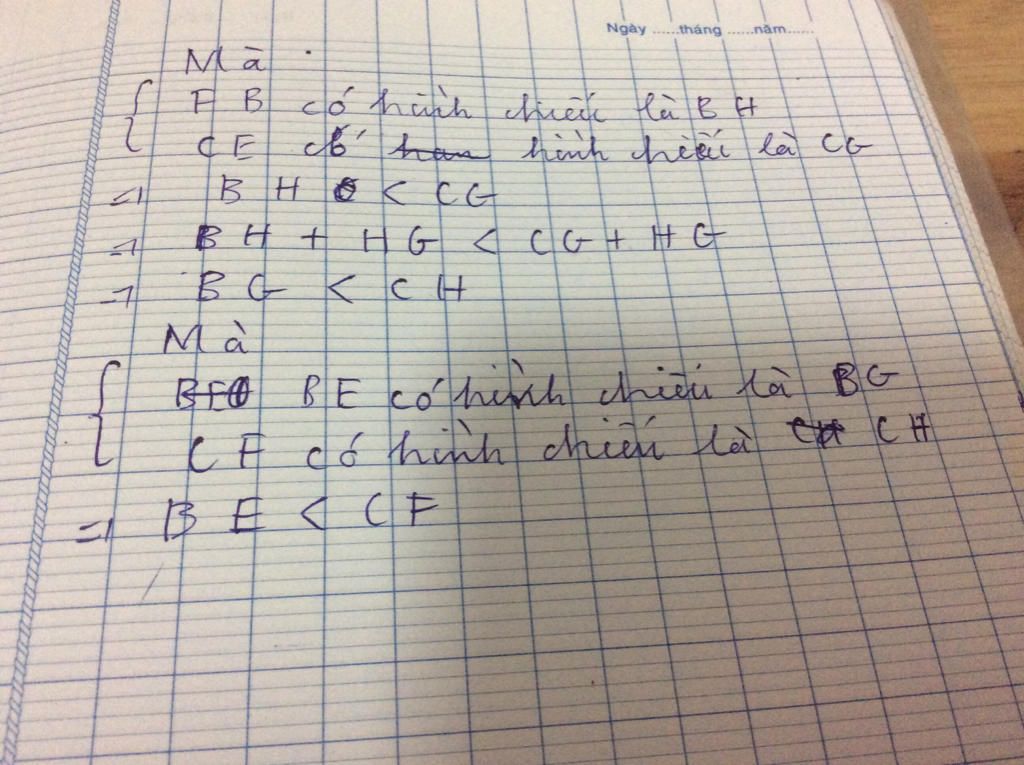 Ngày ......tháng ......năm......
Mà
FB có hình chiếu là BH
CE có hình chiếu là CG
=> BH < CG
=> BH + HG < CG + HG
=> BG < CH
Mà
BE có hình chiếu là BG
CF có hình chiếu là CH
=> BE < CF